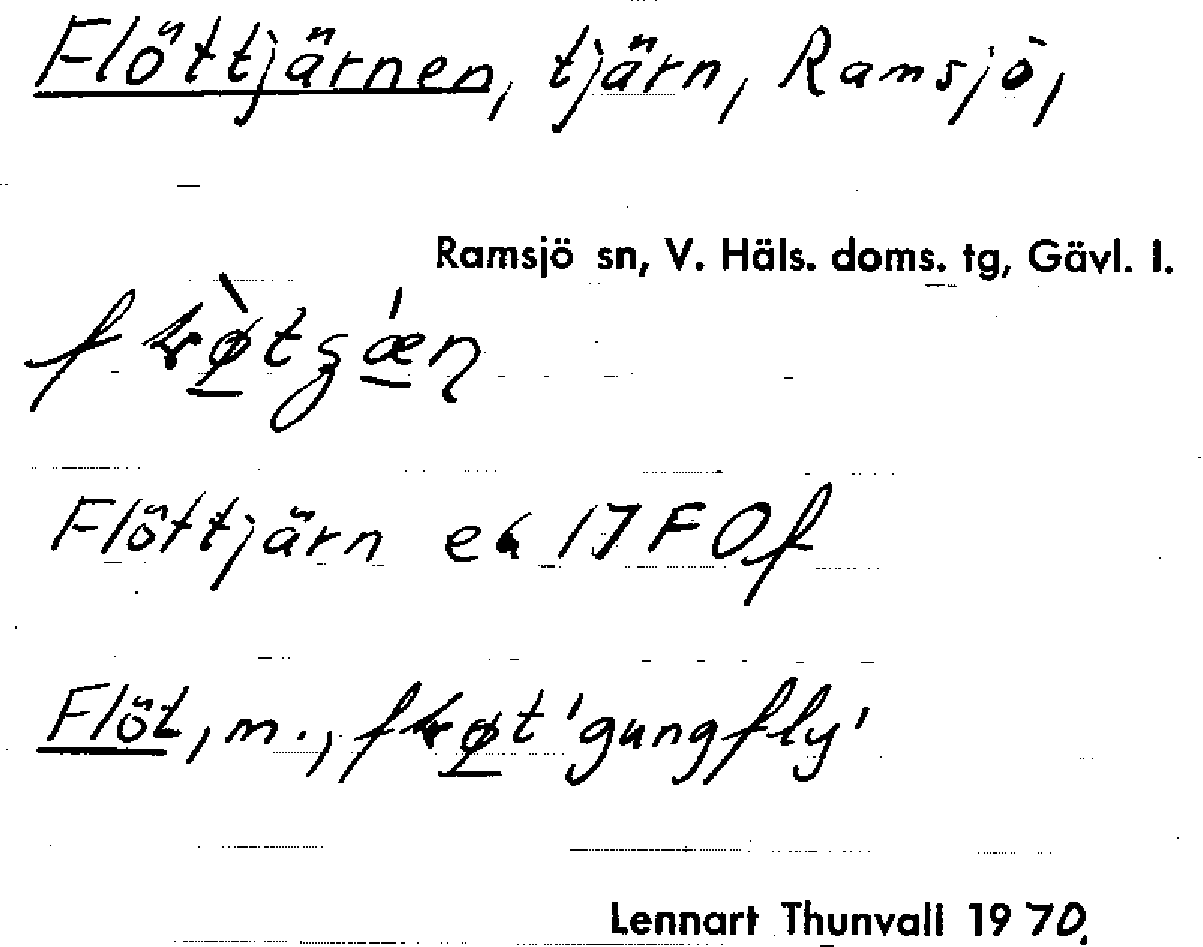 Flöttjärnen, tjärn, Ramsjö,
Ramsjö sn, V. Häls. doms. tg, Gävl. l.
Flöttjärn ek 17F 0f
Flöt, m., 'gungfly'
Lennart Thunvall 1970.